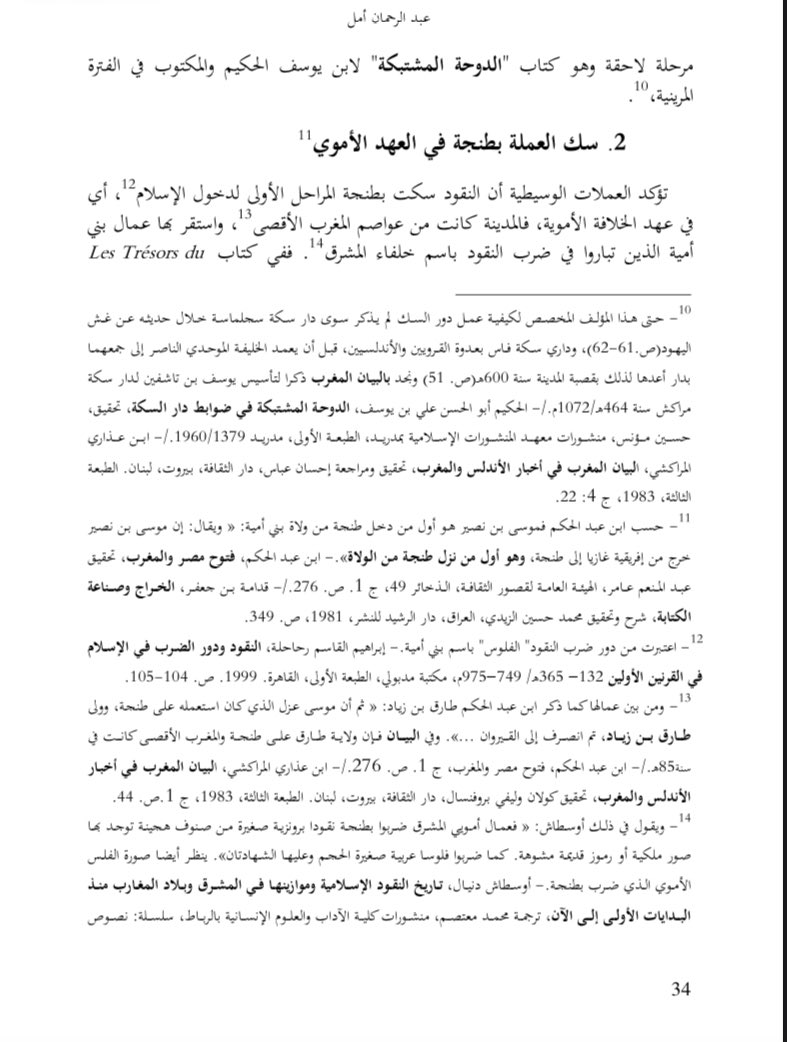 عبد الرحمان أمل
مرحلة لاحقة وهو كتاب "الدوحة المشتبكة" لابن يوسف الحكيم والمكتوب في الفترة
المرينية،10.
2. سك العملة بطنجة في العهد الأموي11
تؤكد العملات الوسيطية أن النقود سكت بطنجة المراحل الأولى لدخول الإسلام12، أي
في عهد الخلافة الأموية، فالمدينة كانت من عواصم المغرب الأقصى13، واستقر بها عمال بني
أمية الذين تباروا في ضرب النقود باسم خلفاء المشرق14. ففي كتاب Les Trésors du
10– حتى هذا المؤلف المخصص لكيفية عمل دور السك لم يذكر سوى دار سكة سجلماسة خلال حديثه عن غش
اليهود(ص.61–62)، وداري سكة فاس بعدوة القرويين والأندلسيين، قبل أن يعمد الخليفة الموحدي الناصر إلى جمعهما
بدار أعدها لذلك بقصبة المدينة سنة 600هـ(ص. 51) ونجد بالبيان المغرب ذكرا لتأسيس يوسف بن تاشفين لدار سكة
مراكش سنة 464هـ/1072م./– الحكيم أبو الحسن علي بن يوسف، الدوحة المشتبكة في ضوابط دار السكة، تحقيق،
حسين مؤنس، منشورات معهد المنشورات الإسلامية بمدريد، الطبعة الأولى، مدريد 1960/1379./– ابن عذاري
المراكشي، البيان المغرب في أخبار الأندلس والمغرب، تحقيق ومراجعة إحسان عباس، دار الثقافة، بيروت، لبنان. الطبعة
الثالثة، 1983، ج 4: 22.
11– حسب ابن عبد الحكم فموسى بن نصير هو أول من دخل طنجة من ولاة بني أمية: « ويقال: إن موسى بن نصير
خرج من إفريقية غازيا إلى طنجة، وهو أول من نزل طنجة من الولاة».– ابن عبد الحكم، فتوح مصر والمغرب، تحقيق
عبد المنعم عامر، الهيئة العامة لقصور الثقافة، الذخائر 49، ج 1. ص. 276./– قدامة بن جعفر، الخراج وصناعة
الكتابة، شرح وتحقيق محمد حسين الزيدي، العراق، دار الرشيد للنشر، 1981، ص. 349.
12– اعتبرت من دور ضرب النقود" الفلوس" باسم بني أمية.– إبراهيم القاسم رحاحلة، النقود ودور الضرب في الإسلام
في القرنين الأولين 132– 365هـ/ 749–975م، مكتبة مدبولي، الطبعة الأولى، القاهرة. 1999. ص. 104–105.
13– ومن بين عمالها كما ذكر ابن عبد الحكم طارق بن زياد: « ثم أن موسى عزل الذي كان استعمله على طنجة، وولى
طارق بن زياد، ثم انصرف إلى القيروان ...». وفي البيان فإن ولاية طارق على طنجة والمغرب الأقصى كانت في
سنة85هـ./– ابن عبد الحكم، فتوح مصر والمغرب، ج 1. ص. 276./– ابن عذاري المراكشي، البيان المغرب في أخبار
الأندلس والمغرب، تحقيق كولان وليفي بروفنسال، دار الثقافة، بيروت، لبنان. الطبعة الثالثة، 1983، ج 1.ص. 44.
14– ويقول في ذلك أوسطاش: « فعمال أمويي المشرق ضربوا بطنجة نقودا برونزية صغيرة من صنوف هجينة توجد بها
صور ملكية أو رموز قديمة مشوهة. كما ضربوا فلوسا عربية صغيرة الحجم وعليها الشهادتان». ينظر أيضا صورة الفلس
الأموي الذي ضرب بطنجة.– أوسطاش دنيال، تاريخ النقود الإسلامية وموازينها في المشرق وبلاد المغارب منذ
البدايات الأولى إلى الآن، ترجمة محمد معتصم، منشورات كلية الآداب والعلوم الإنسانية بالرباط، سلسلة: نصوص
34